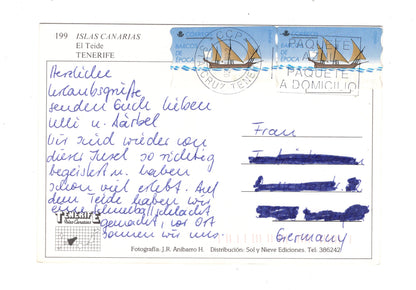 199 ISLAS CANARIAS
El Teide
TENERIFE
Herzliche
Urlaubsgrüße
senden Euch lieben
Ulli u. Bärbel
Wir sind wieder von
dieser Insel so richtig
begeistert u. haben
schon viel erlebt. Auf
dem Teide haben wir
eine Schneeballschlacht
gemacht, vor Ort
sonnen wir uns.
TENERIFE
Islas Canarias
CORREOS
BARCOS
DE
EPOCA
CORREOS
BARCOS
DE
EPOCA
CCP
CRUZ TENE
PAQUETE
A
PAQUETE
A DOMICILIO
Frau
Germany
Fotografía. J.R. Anibarro H. Distribución: Sol y Nieve Ediciones. Tel. 386242